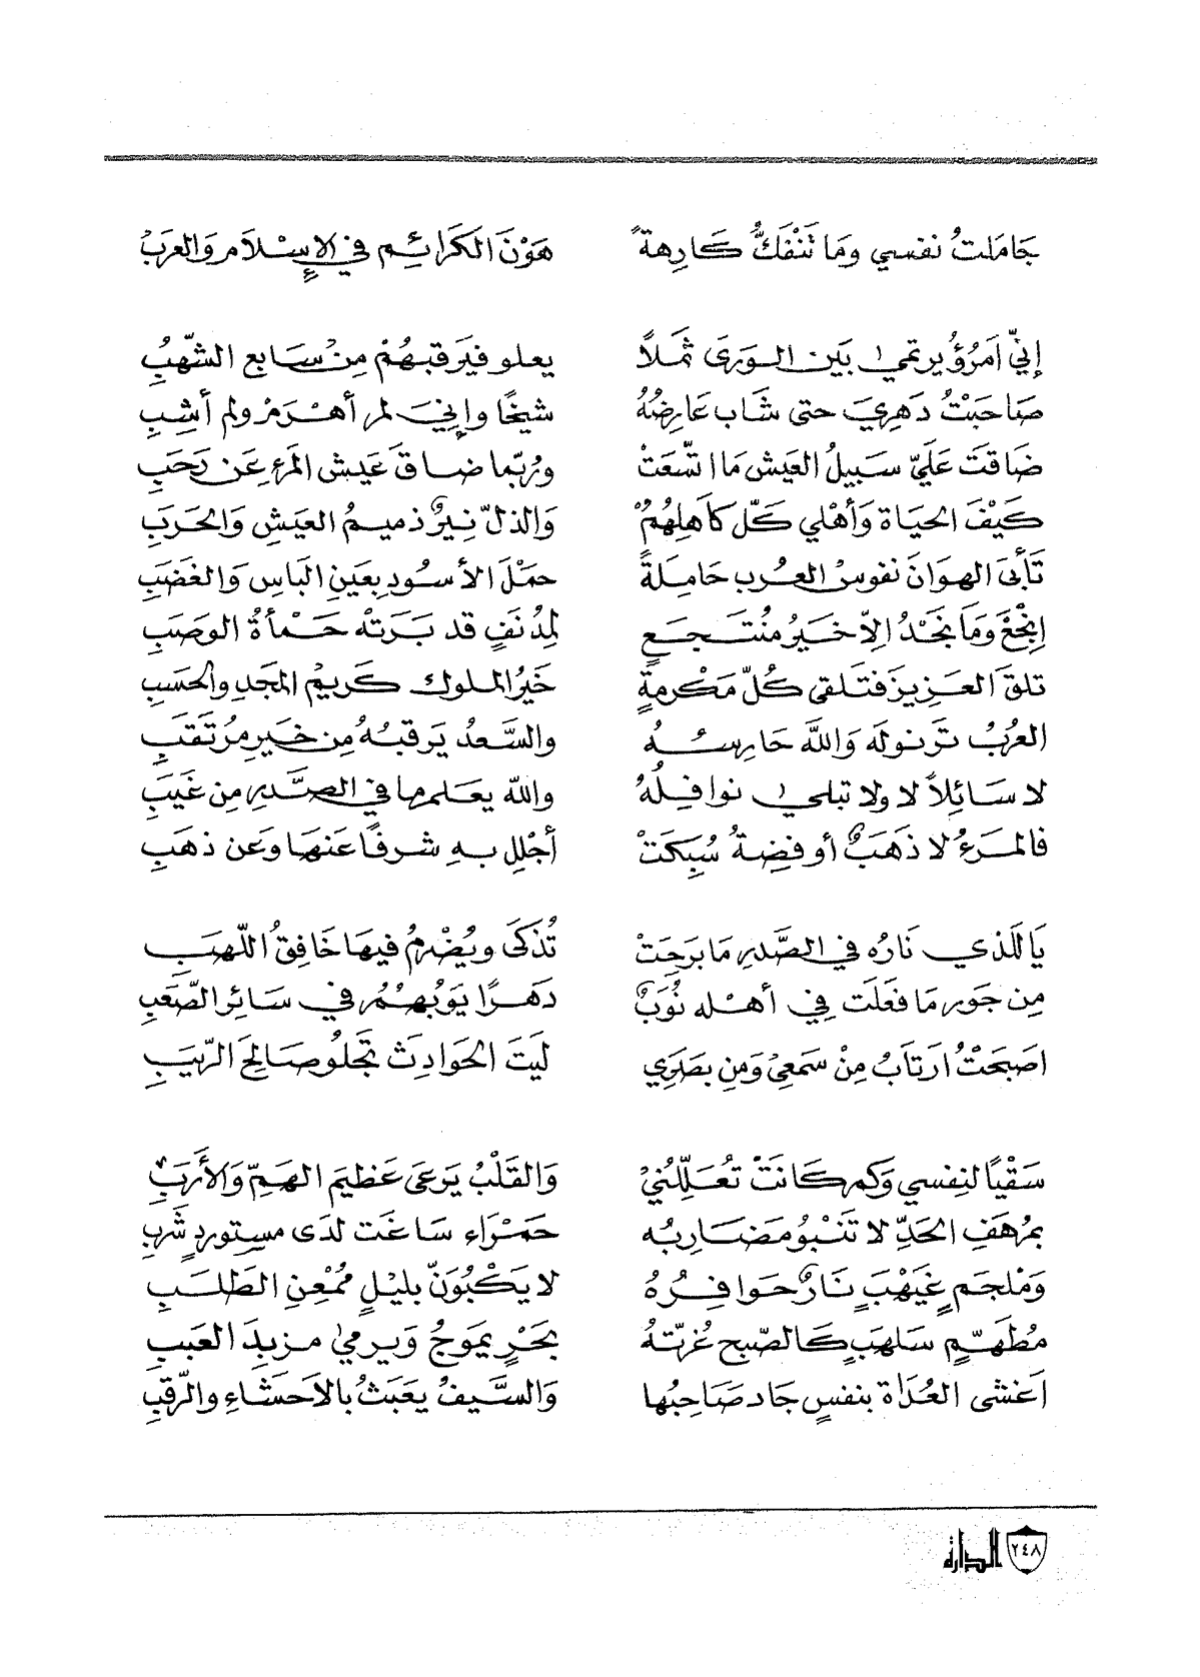 جَامَلتُ نفسي ومَا تَنْفَكُّ كَارِهةً هَوْنَ الكَرائِمِ في الإسْلَامِ وَالعَرَبْ
إنيّ اَمرُؤُ يرتمي بَين الوَرَى ثَمِلاً يعلو فيَرقبهُمْ مِنْ سَابعِ الشّهبُِ
صَاحَبْتُ دَهرِيَ حتى شَاب عَارِضهُ شيخًا وإنِيَ لم أهْرَمْ ولم أشِبِ
ضَاقَتَ عَلَيّ سَبيلُ العَيش مَا اتّسَعَتْ ورُبّما ضاقَ عَيش المَرءِ عَن رَحَبِ
كَيْفَ الحيَاة وَأهْلي كَلّ كَاهِلِهُمُ وَالذلّ نِيرٌ ذميمُ العَيَشِ وَالحَرَبِ
تَأبىَ الهوَانَ نفوسْ العُرب حَامِلَةً حمَْلَ الأسُودِ بعَينِ الَباسِ وَالغَضَبِ
اِنجْعَْ وَمَا نجَدُْ الاِّ خَيَرُ مُنُتَجَعٍ لمِدُنَفٍ قد بَرَتهْ حَمْأةُ الوَصَبِ
تلقَ العَزيزَ فتَلقى كُلّ مَكْرمةٍ خَيرُ الملوك كَريمْ المَجَدِ والحَسَبِ
العُربُ تَرنولَه وَاللَّه حَارِسُهُ والسَّعدُ يَرقبُهُ مِن خَيَرِ مرُتَقَبِ
لا سَائِلاً لا ولا تبلى نوافِلُهُ والله يعَلمها في الصَّدرِ مِن غَيَبِ
فالمَرءُ لا ذَهَبٌ أو فضِةُ سُبِكَتْ أجْلِل بهِ شرفًا عَنهَا وعَن ذهَبِ
يَا للَّذي نَارُه في الصَّدرِ مَا بَرِحَتْ تُذْكَى ويُضْرِمُ فيهَا خَافِقُ اللّهَبِ
مِن جَورِ مَا فعَلَت فِي أهْله نُوَبٌ دَهرًا يَوَبُهمُْ في سَائِر الصّعَبِ
اصَبَحَتْ ارَتَابُ مِنْ سَمَعِيْ وَمَنِ بصَرَِي ليَتَ الحَوادِثَ تجَلُو صَالحَِ الرّيَبِ
سَقْيًا لنِفسي وَكم كَانَتَْ تعُلّلِنُيْ وَالقَلْبُ يَرعَىَ عَظيمَ الهَمِّ وَالأرَبِ
بمُرهَفِ الحَدِّ لا تَنْبُو مَضَاربُه حَمَْرَاء سَاغَت لدَى مستوردٍ شَرَبِ
وَمْلجَمٍ غَيَهْبٍَ نَارٌ حَوافِرُهُ لا يَكْبُوَنّ بليْلٍ ممُعْنِ الطَلَبِ
مُطهَمّ سَلهَبٍ كَالصّبحِ غُرّتَهُ بحَْرٍ يَموَجُ وَيرمي مزبِدَ العَببِ
اَغشى العُدَاة بنفسٍ جَاد صَاحِبُها وَالسَّيفُ يعَبَثُ بالاَحَشَاءِ والرّقبِ
٢٤٨ الدارة